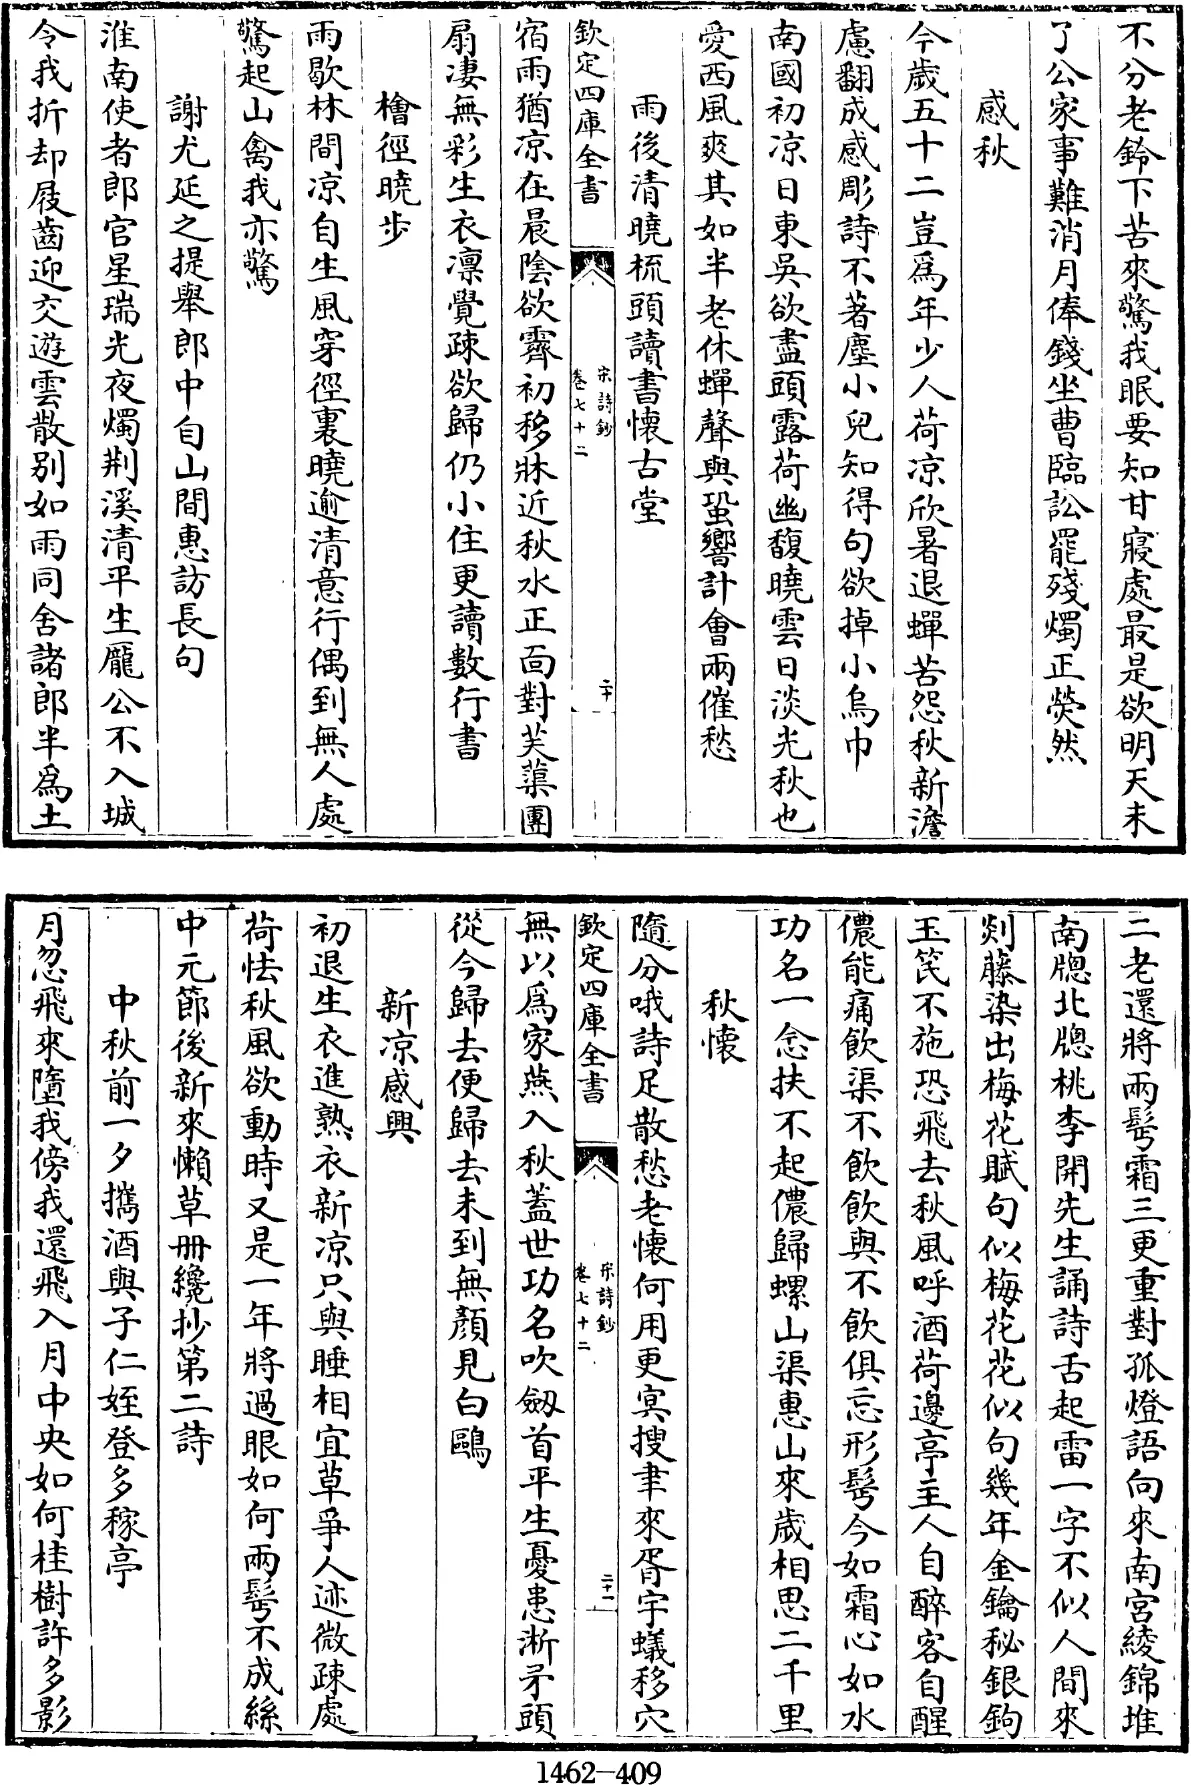 不分老鈴下苦來驚我眠要知甘寢處最是欲明天未
了公家事難消月俸錢坐曹臨訟罷殘燭正熒然
感秋
今歲五十二豈爲年少人荷凉欣暑退蟬苦怨秋新澹
慮翻成感彫詩不著塵小兒知得句欲掉小烏巾
南國初凉日東吳欲盡頭露荷幽馥曉雲日淡光秋也
愛西風爽其如半老休蟬聲與蛩響計會兩催愁
雨後清曉梳頭讀書懷古堂
欽定四庫全書
宋詩鈔
卷七十二
二十
宿雨猶凉在晨陰欲霽初移牀近秋水正面對芙蕖團
扇凄無彩生衣凛覺疎欲歸仍小住更讀數行書
檜徑曉步
雨歇林間凉自生風穿徑裏曉逾清意行偶到無人處
驚起山禽我亦驚
謝尤延之提舉郎中自山間惠訪長句
淮南使者郎官星瑞光夜燭荆溪清平生龎公不入城
令我折却屐齒迎交遊雲散别如雨同舍諸郎半爲土
二老還將兩髩霜三更重對孤燈語向來南宫綾錦堆
南牎北牎桃李開先生誦詩舌起雷一字不似人間來
剡藤染出梅花賦句似梅花花似句幾年金鑰秘銀鉤
玉笢不施恐飛去秋風呼酒荷邊亭主人自醉客自醒
儂能痛飲渠不飲飲與不飲俱忘形髩今如霜心如水
功名一念扶不起儂歸螺山渠惠山來歲相思二千里
秋懷
隨分哦詩足散愁老懷何用更冥搜聿來胥宇蟻移穴
欽定四庫全書
宋詩鈔
卷七十二
二十一
無以爲家燕入秋蓋世功名吹劔首平生憂患淅矛頭
從今歸去便歸去未到無顔見白鷗
新凉感興
初退生衣進熟衣新凉只與睡相宜草爭人迹微疎處
荷怯秋風欲動時又是一年將過眼如何兩髩不成絲
中元節後新來懶草册纔抄第二詩
中秋前一夕攜酒與子仁姪登多稼亭
月忽飛來墮我傍我還飛入月中央如何桂樹許多影
1462-409